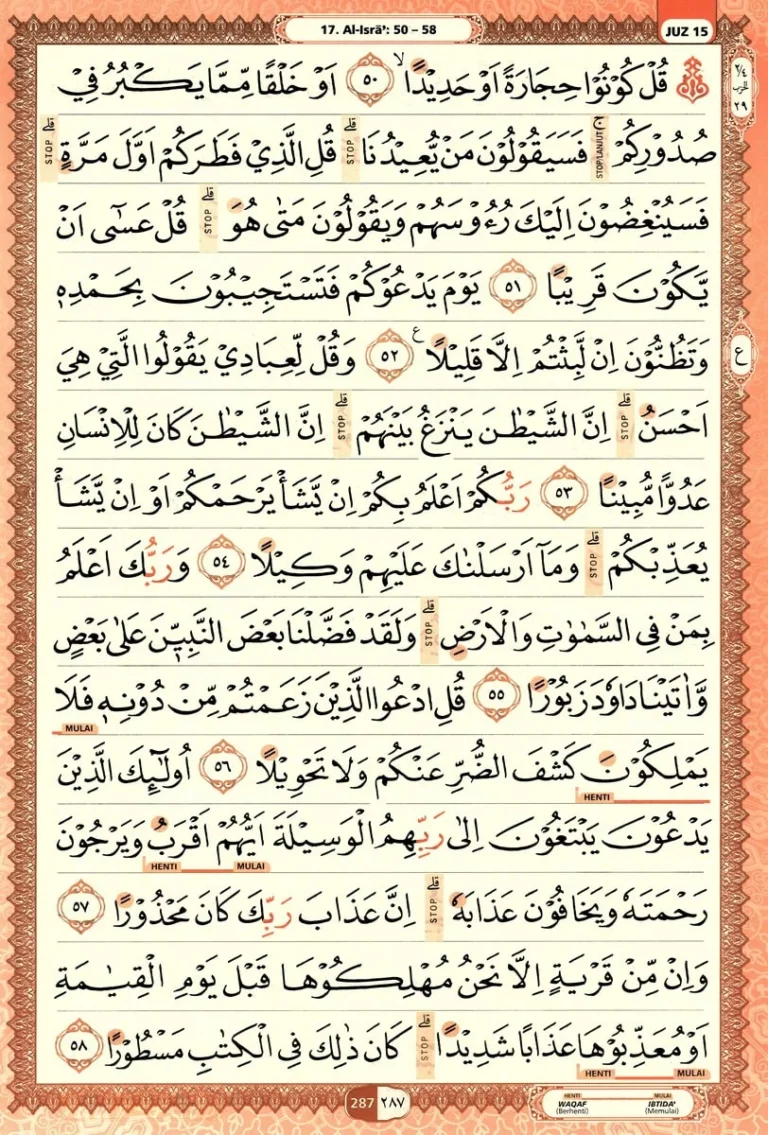 17. Al-Isrā': 50 – 58
JUZ 15
۞ قُلْ كُوْنُوْا حِجَارَةً اَوْ حَدِيْدًاۙ ٥٠ اَوْ خَلْقًا مِّمَّا يَكْبُرُ فِيْ
٢/٤ الحزب ٢٩
صُدُوْرِكُمْۚ STOP/LANJUT فَسَيَقُوْلُوْنَ مَنْ يُّعِيْدُنَاۗ STOP قُلِ الَّذِيْ فَطَرَكُمْ اَوَّلَ مَرَّةٍۗ STOP
فَسَيُنْغِضُوْنَ اِلَيْكَ رُءُوْسَهُمْ وَيَقُوْلُوْنَ مَتٰى هُوَۗ STOP قُلْ عَسٰٓى اَنْ
يَّكُوْنَ قَرِيْبًا ٥١ يَوْمَ يَدْعُوْكُمْ فَتَسْتَجِيْبُوْنَ بِحَمْدِهٖ
وَتَظُنُّوْنَ اِنْ لَّبِثْتُمْ اِلَّا قَلِيْلًا ࣖ ٥٢ وَقُلْ لِّعِبَادِيْ يَقُوْلُوا الَّتِيْ هِيَ
ع
اَحْسَنُۗ STOP اِنَّ الشَّيْطٰنَ يَنْزَغُ بَيْنَهُمْۗ STOP اِنَّ الشَّيْطٰنَ كَانَ لِلْاِنْسَانِ
عَدُوًّا مُّبِيْنًا ٥٣ رَبُّكُمْ اَعْلَمُ بِكُمْ اِنْ يَّشَأْ يَرْحَمْكُمْ اَوْ اِنْ يَّشَأْ
يُعَذِّبْكُمْۗ STOP وَمَآ اَرْسَلْنٰكَ عَلَيْهِمْ وَكِيْلًا ٥٤ وَرَبُّكَ اَعْلَمُ
بِمَنْ فِى السَّمٰوٰتِ وَالْاَرْضِۗ STOP وَلَقَدْ فَضَّلْنَا بَعْضَ النَّبِيّٖنَ عَلٰى بَعْضٍ
وَّاٰتَيْنَا دَاوٗدَ زَبُوْرًا ٥٥ قُلِ ادْعُوا الَّذِيْنَ زَعَمْتُمْ مِّنْ دُوْنِهٖ فَلَا
MULAI
يَمْلِكُوْنَ كَشْفَ الضُّرِّ عَنْكُمْ وَلَا تَحْوِيْلًا ٥٦ اُولٰۤىِٕكَ الَّذِيْنَ
HENTI
يَدْعُوْنَ يَبْتَغُوْنَ اِلٰى رَبِّهِمُ الْوَسِيْلَةَ اَيُّهُمْ اَقْرَبُ وَيَرْجُوْنَ
MULAI HENTI
رَحْمَتَهٗ وَيَخَافُوْنَ عَذَابَهٗۗ STOP اِنَّ عَذَابَ رَبِّكَ كَانَ مَحْذُوْرًا ٥٧
وَاِنْ مِّنْ قَرْيَةٍ اِلَّا نَحْنُ مُهْلِكُوْهَا قَبْلَ يَوْمِ الْقِيٰمَةِ
اَوْ مُعَذِّبُوْهَا عَذَابًا شَدِيْدًاۗ STOP كَانَ ذٰلِكَ فِى الْكِتٰبِ مَسْطُوْرًا ٥٨
MULAI HENTI
287 ٢٨٧
HENTI MULAI
WAQAF IBTIDA'
(Berhenti) (Memulai)